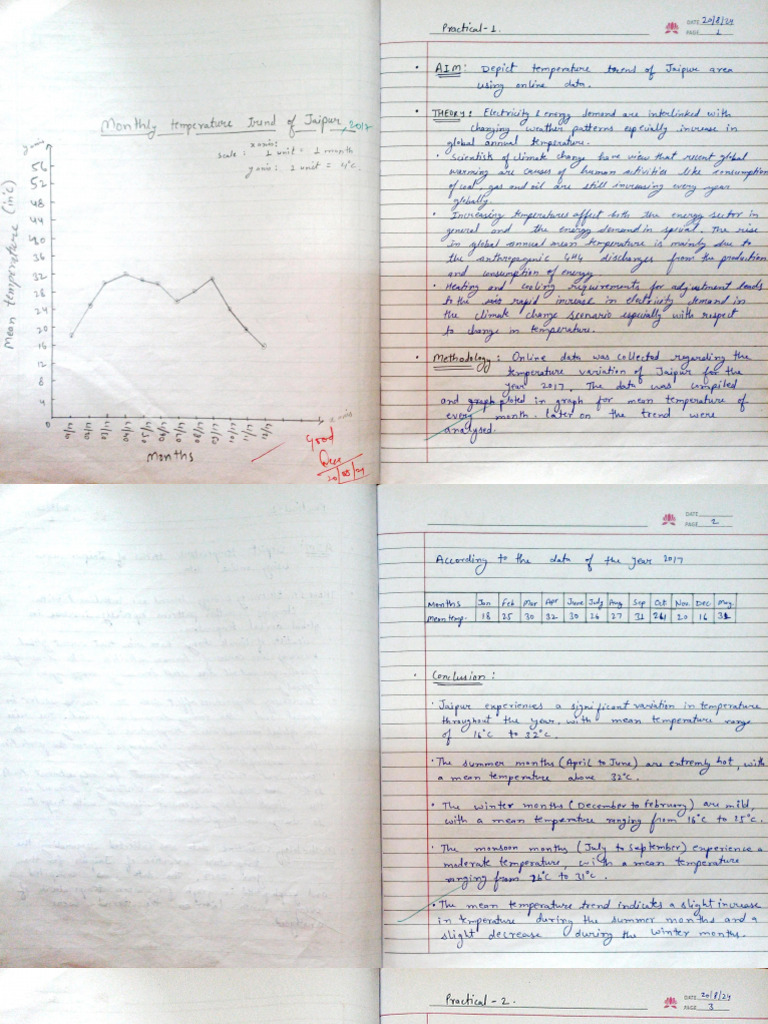 Monthly temperature trend of Jaipur, 2017
scale: x axis: 1 unit = 1 month
y axis: 1 unit = 4°C
y axis
Mean temperature (in °C)
56
52
48
44
40
36
32
28
24
20
16
12
8
4
0
x axis
Months
Good
20/08/24
Practical-1.
DATE 20/8/24
PAGE 1
• AIM: Depict temperature trend of Jaipur area
using online data.
• THEORY: Electricity & energy demand are interlinked with
changing weather patterns especially increase in
global annual temperature.
• Scientists of climate change have view that recent global
warming are causes of human activities like consumption
of coal, gas and oil are still increasing every year
globally.
• Increasing temperatures affect both the energy sector in
general and the energy demand in special. The rise
in global annual mean temperature is mainly due to
the anthropogenic GHG discharges from the production
and consumption of energy.
• Heating and cooling requirements for adjustment leads
to the rapid increase in electricity demand in
the climate change scenario espacially with respect
to change in temperature.
• Methodology: Online data was collected regarding the
temperature variation of Jaipur for the
year 2017. The data was compiled
and graph ploted in graph for mean temperature of
every month. Later on the trend were
analysed.
DATE
PAGE 2
According to the data of the year 2017
Months Jan Feb Mar Apr June July Aug Sep Oct Nov Dec May
Mean temp. 18 25 30 32 30 26 27 31 20 16
• Conclusion:
• Jaipur experiences a significant variation in temperature
throughout the year, with mean temperature range
of 16°C to 32°C.
• The summer months (April to June) are extremly hot, with
a mean temperature above 32°C.
• The winter months (December to February) are mild,
with a mean temperature ranging from 16°C to 25°C.
• The monsoon months (July to September) experience a
moderate temperature, with a mean temperature
ranging from 26°C to 31°C.
• The mean temperature trend indicates a slight increase
in temperature during the summer months and a
slight decrease during the winter months.
Practical - 2.
DATE 20/8/24
PAGE 3